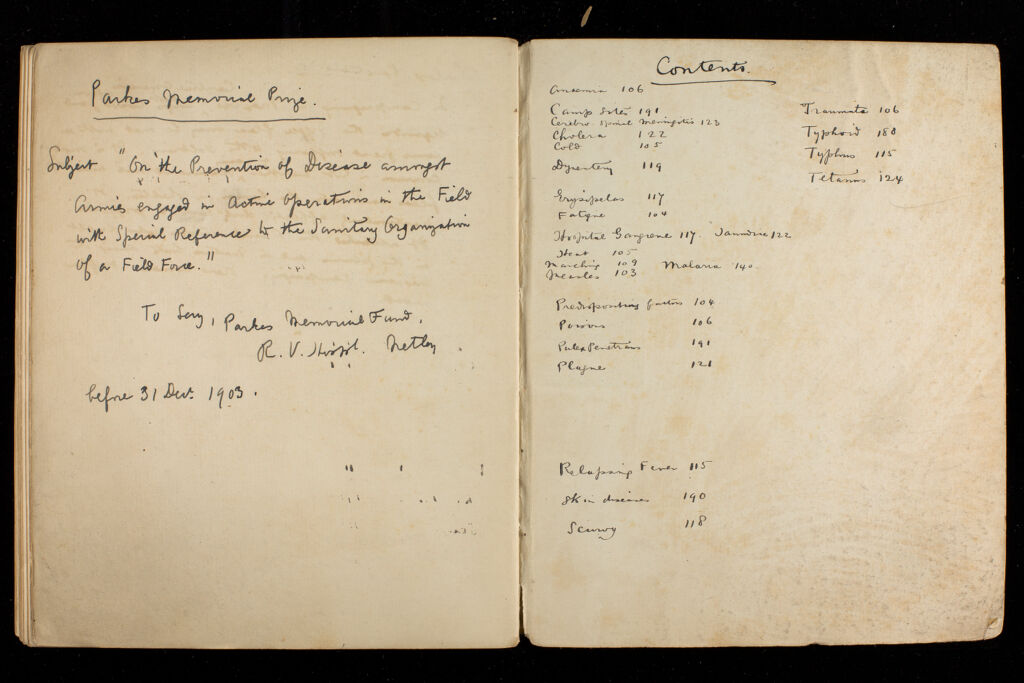 Parkes Memorial Prize.
Subject "On the Prevention of Disease amongst
Armies engaged in Active Operations in the Field
with Special Reference to the Sanitary Organization
of a Field Force."
To Secy, Parkes Memorial Fund,
R. V. Hospl. Netley
before 31 Decr. 1903.
Contents.
Anaemia 106
Camp Sites 191
Cerebro Spinal Meningitis 123
Cholera 122
Cold 105
Dysentery 119
Erysipelas 117
Fatigue 104
Hospital Gangrene 117. Jaundice 122
Heat 105
Marching 109
Measles 103
Malaria 140.
Predisposing factors 104
Poisons 106
Pulex Penetrans 191
Plague 121
Relapsing Fever 115
Skin diseases 190
Scurvy 118
Traumata 106
Typhoid 188
Typhus 115
Tetanus 124